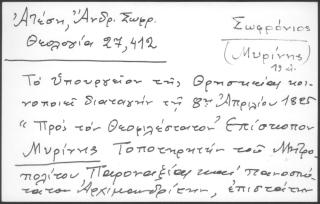 Ἀτέση, Ἀνδρ. Σωφρ.
Θεολογία 27, 412
Σωφρόνιος
(Μυρίνης)
19 αἰ.
Τό Ὑπουργεῖον τῆς Θρησκείας κοι-
νοποιεῖ διαταγήν τῇ 8ῃ Ἀπριλίου 1825
"Πρός τόν Θεοφιλέστατον Ἐπίσκοπον
Μυρίνης Τοποτηρητήν τοῦ Μητρο-
πολίτου Παροναξίας καί πανοσιω-
τάτον Ἀρχιμανδρίτην, ἐπιστάτην